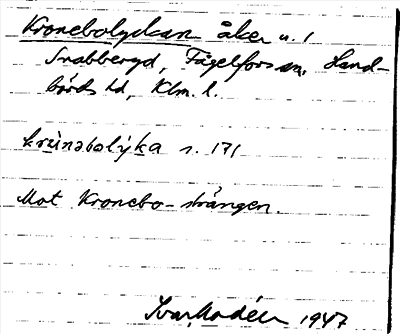 Kronebolyckan åker u. 1
Snabberyd, Fågelfors sn. Hand-
börds hd, Klm. l.
krùnəbolỳka s. 171
Mot Kronebo-strängen.
Ivar Modéer 1947